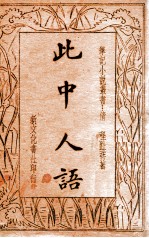 筆記小說叢書
清 程趾祥著
此中人語
新文化書社印行